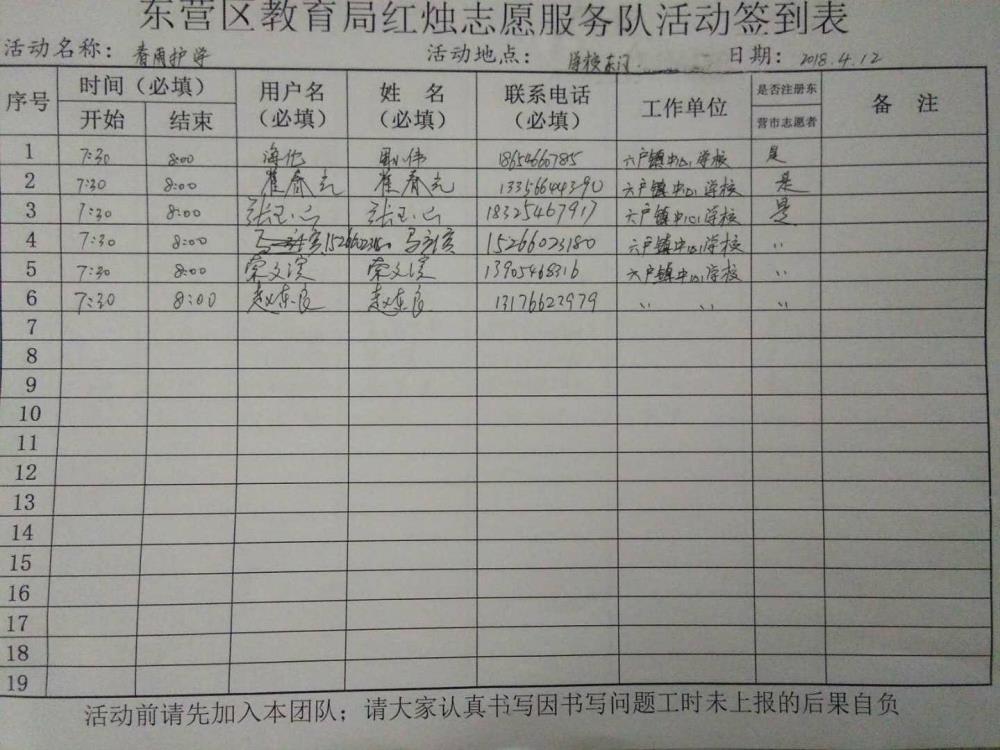 东营区教育局红烛志愿服务队活动签到表
活动名称：春雨护学 活动地点：学校东门 日期：2018.4.12
序号 时间（必填） 用户名（必填） 姓名（必填） 联系电话（必填） 工作单位 是否注册东营市志愿者 备注
开始 结束
1 7:30 8:00 海伦 伟 18654660785 六户镇中心学校 是
2 7:30 8:00 崔春元 崔春元 13356644390 六户镇中心学校 是
3 7:30 8:00 张玉心 张玉心 18325467917 六户镇中心学校 是
4 7:30 8:00 马 15266023180 马 15266023180 六户镇中心学校 〃
5 7:30 8:00 荣文滨 荣文滨 13905468316 六户镇中心学校 〃
6 7:30 8:00 赵东良 赵东良 13176623979 〃 〃 〃
7
8
9
10
11
12
13
14
15
16
17
18
19
活动前请先加入本团队；请大家认真书写因书写问题工时未上报的后果自负